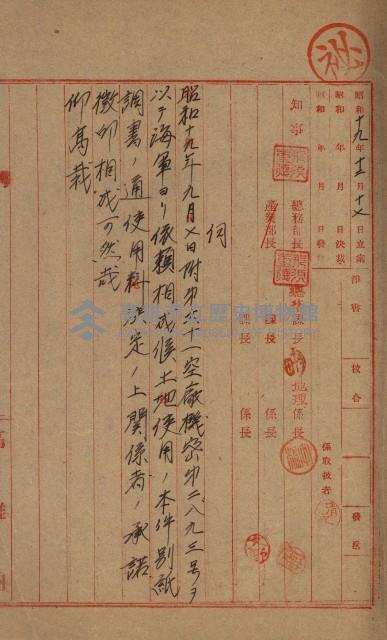 秘
昭和十九年十二月十七日立案
昭和 年 月 日決裁
昭和 年 月 日發
淨書
校合
發送
知事
總務部長
產業部長
總務課長
課長
課長
地理係長
係長
係長
係取扱者
伺
昭和十九年九月 日附第六十一空廠機密第二八九三号ヲ
以テ海軍ヨリ依頼相成候土地使用ノ本件別紙
調書ノ通使用料決定ノ上關係者ノ承諾
徵印相成可然哉
仰高裁
高雄市立歷史博物館
高雄州